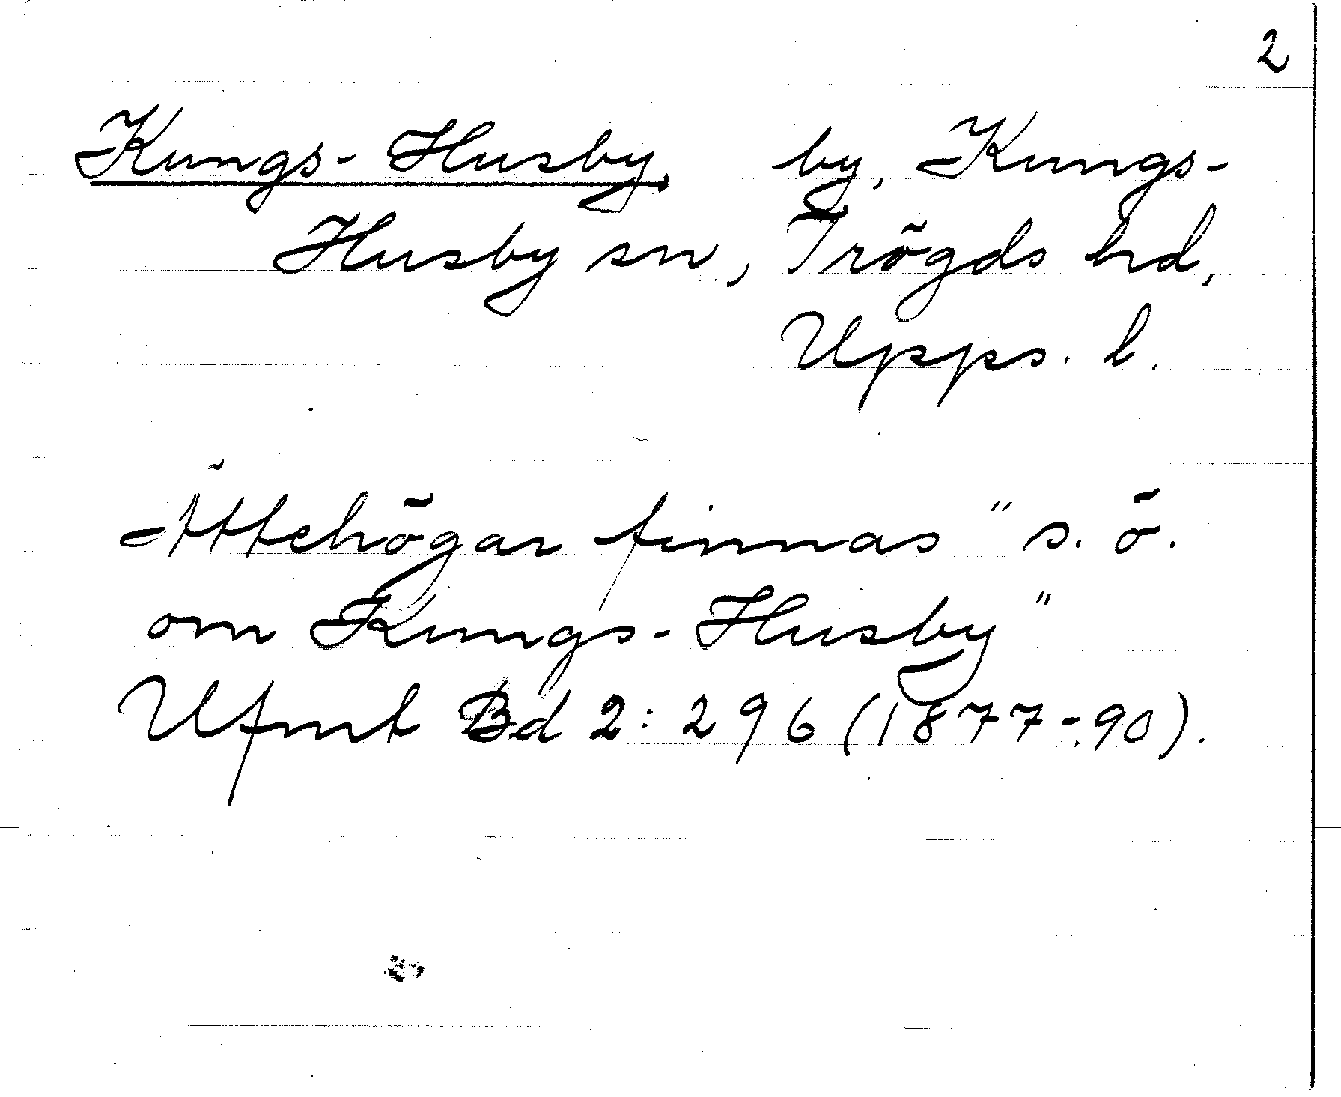 2
Kungs-Husby, by, Kungs-
Husby sn, Trögds hd,
Upps. l.
Ättehögar finnas "s. ö.
om Kungs-Husby"
Ufmt Bd 2: 296 (1877-90).